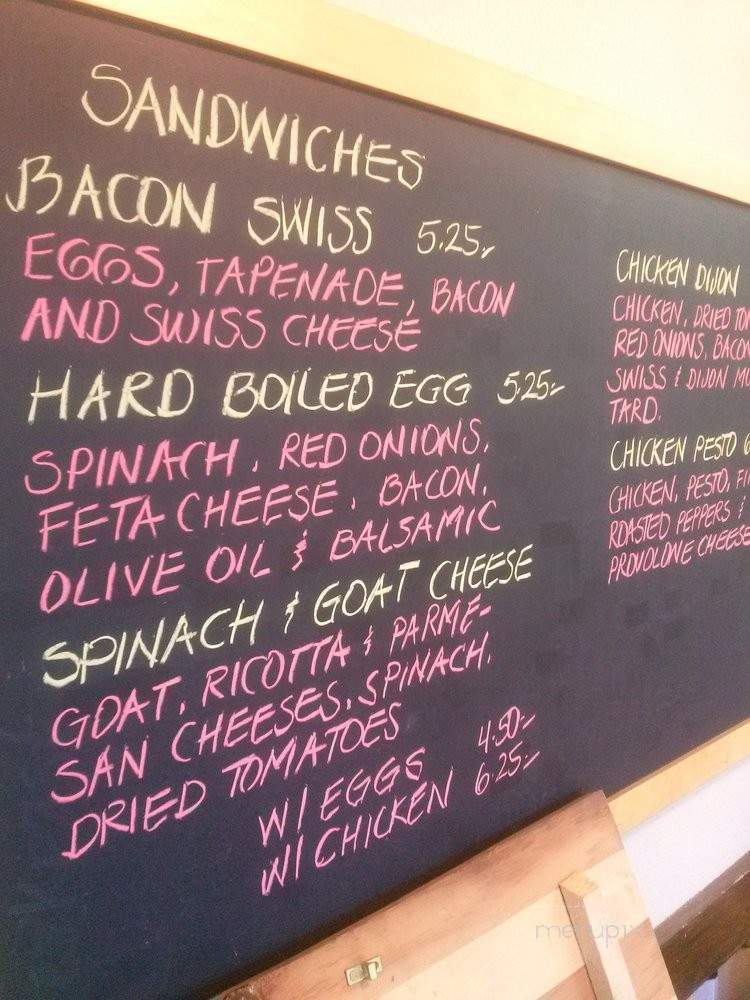 SANDWICHES
BACON SWISS 5.25,-
EGGS, TAPENADE, BACON
AND SWISS CHEESE
HARD BOILED EGG 5.25-
SPINACH, RED ONIONS,
FETA CHEESE, BACON,
OLIVE OIL & BALSAMIC
SPINACH & GOAT CHEESE
GOAT, RICOTTA & PARME-
SAN CHEESES, SPINACH,
DRIED TOMATOES
W/ EGGS 4.50-
W/ CHICKEN 6.25-
CHICKEN DIJON
CHICKEN, DRIED
RED ONIONS, BACON
SWISS & DIJON
TARD.
CHICKEN PESTO
CHICKEN, PESTO,
ROASTED PEPPERS &
PROVOLONE CHEESE